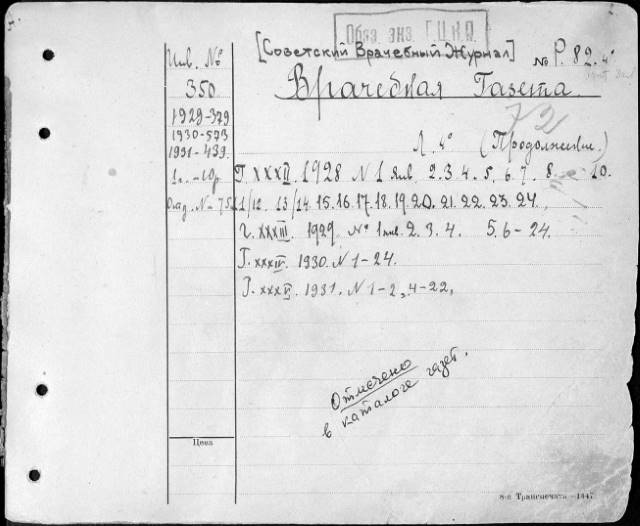 Обяз. экз. Г.Ц.К.П.
[Советский Врачебный Журнал] № Р. 82. 4°
Инв. №
350
Врачебная Газета.
1929-379
1930-573
1931-439.
Л. 4° (Продолжение.)
Г. XXXII. 1928 N 1 янв. 2. 3. 4. 5. 6. 7. 8. 10.
11/12. 13/14. 15. 16. 17. 18. 19. 20. 21. 22. 23. 24.
Г. XXXIII. 1929. № 1 янв. 2. 3. 4. 5. 6 - 24.
Г. XXXIV. 1930. N 1-24.
Г. XXXV. 1931. N 1-2, 4-22,
Отмечено
в каталоге газет.
Цена
Транспечать -1447